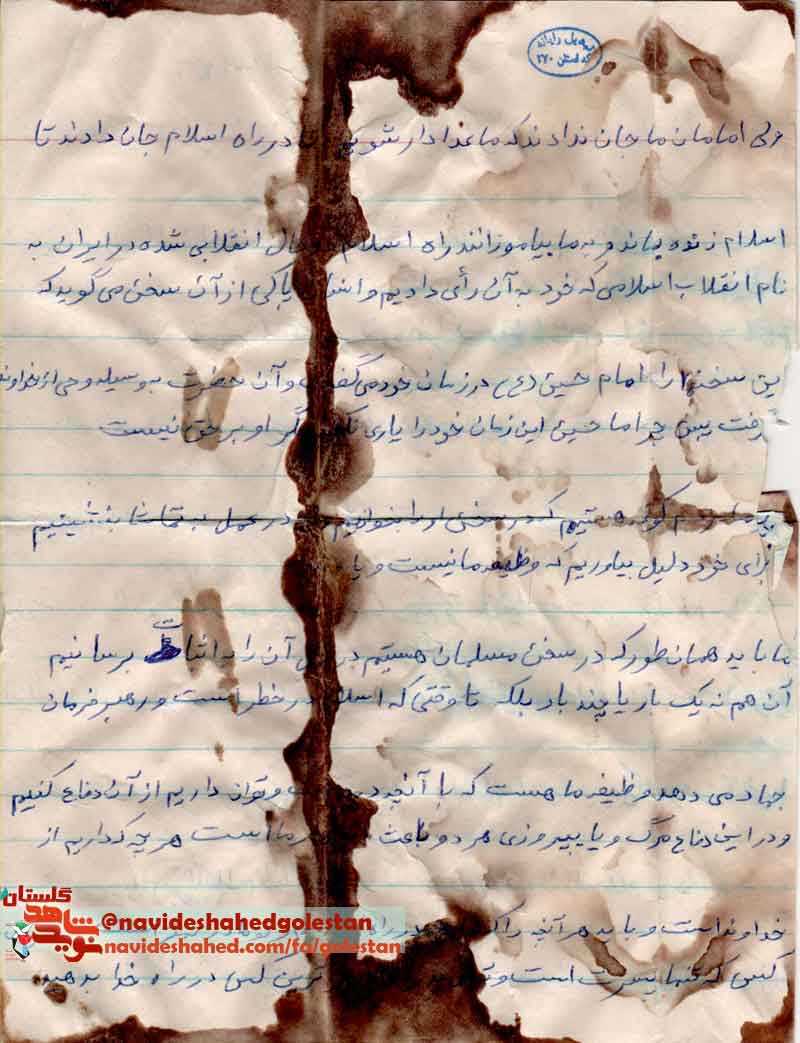 ولی امامان ما جان ندادند که ما عزادار شویم در راه اسلام جان دادند تا
اسلام زنده بماند و به ما بیاموزانند راه اسلام انقلابی شده در ایران به
نام انقلاب اسلامی که خود به آن رأی دادیم و پاکی از آن سخن می گوید که
این سخن را امام حسین (ع) در زمان خود می و آن حضرت بوسیله وحی از خداوند
گرفت پس چرا ما حسین این زمان خود را یاری او بر حق نیست
هستیم که در سخن او را بخوانیم در عمل به تماشا بنشینیم
برای خود دلیل بیاوریم که وظیفه ما نیست و یا
ما باید همان طور که در سخن مسلمان هستیم در آن را به اثبات برسانیم
آن هم نه یک بار یا چند بار بلکه تا وقتی که اسلام در خطر است و رهبر فرمان
جهاد می دهد وظیفه ما هست که با آنچه در و توان داریم از آن دفاع کنیم
و در این دفاع مرگ و یا پیروزی هر دو باعث ما است هر چه که داریم از
خداوند است و باید هر آنچه را که
کسی که تنها پسرت است و کس در راه خدا بدهید
گلستان
نوید شاهد
@navideshahedgolestan
navideshahed.com/fa/golestan